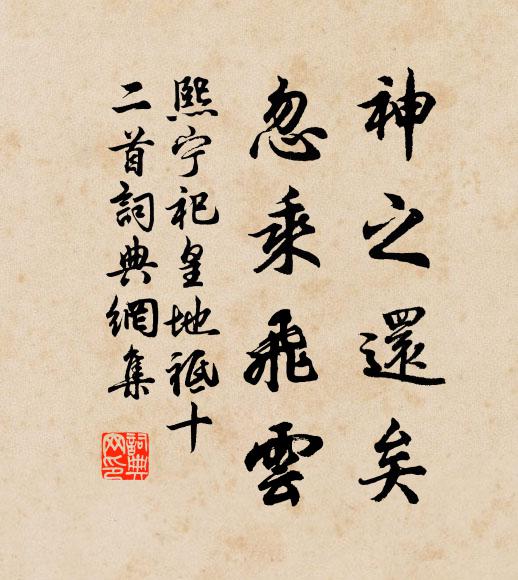 神之還矣
忽乘飛雲
熙宁祀皇地祗十
二首詞典網集
詞典
网印